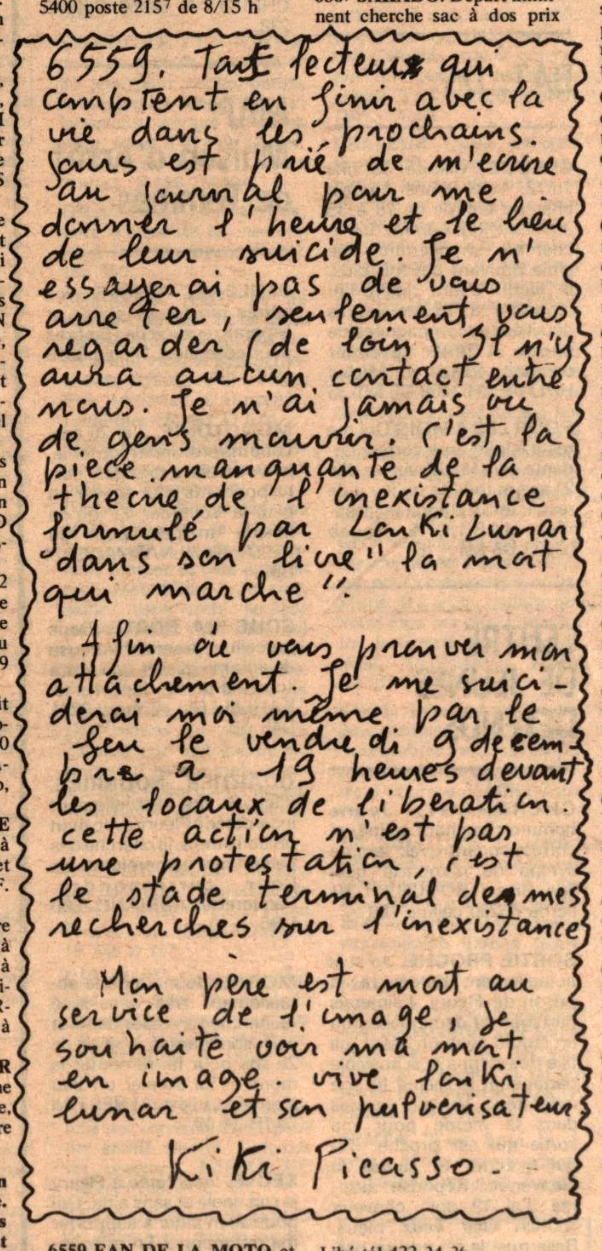 5400 poste 2157 de 8/15 h
nent cherche sac à dos prix
6559. Tout lecteurs qui
comptent en finir avec la
vie dans les prochains.
jours est prié de m'ecrire
au journal pour me
donner l'heure et le lieu
de leur suicide. Je n'
essayerai pas de vous
arreter, seulement vous
regarder (de loin) Il n'y
aura aucun contact entre
nous. Je n'ai jamais vu
de gens mourrir. C'est la
piece manquante de la
theorie de l'inexistance
formulé par Louki Lunar
dans son livre "la mort
qui marche".
Afin de vous prouver mon
attachement. Je me suici-
derai moi même par le
feu le vendredi 9 decem-
bre a 19 heures devant
les locaux de liberation.
cette action n'est pas
une protestation, c'est
le stade terminal de mes
recherches sur l'inexistance
Mon père est mort au
service de l'image, je
souhaite voir ma mort
en image. vive louki
lunar et son pulverisateur
Kiki Picasso.
6559 FAN DE LA MOTO et